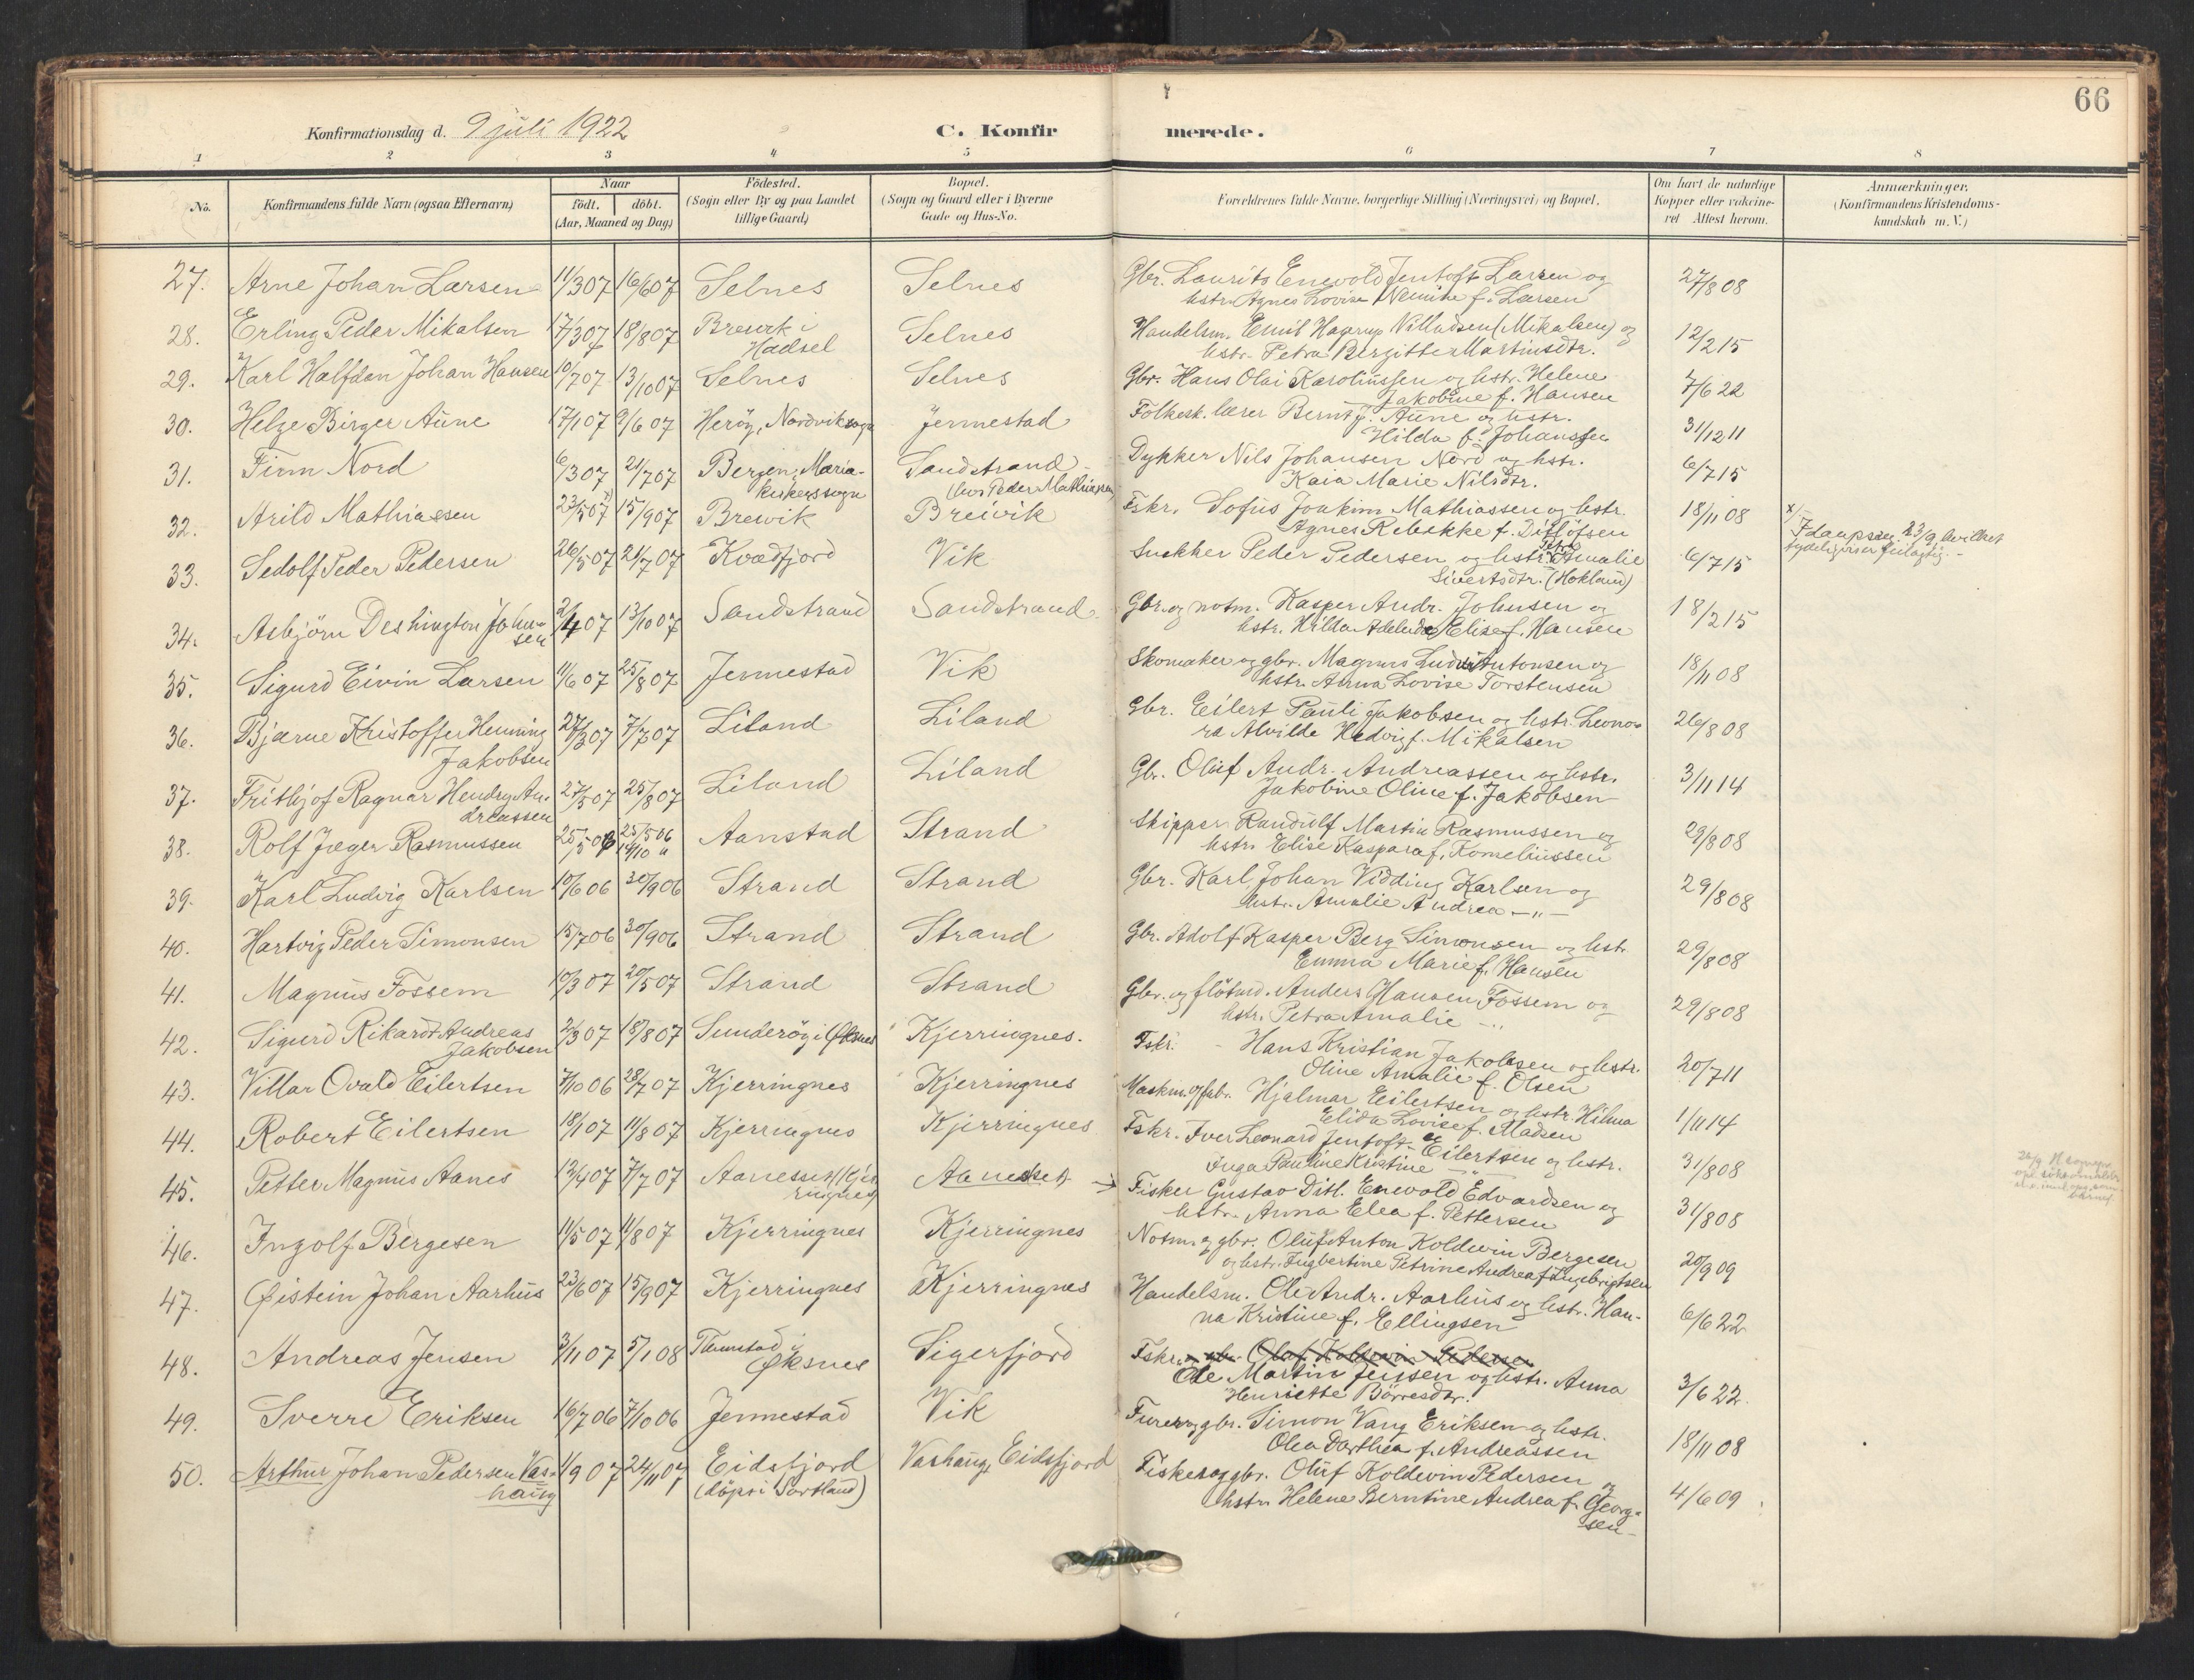 66
Konfirmationsdag d. 9 juli 1922
C. Konfirmerede.
1 2 3 4 5 6 7 8
No.
Konfirmandens fulde Navn (ogsaa Efternavn)
Naar
födt. döbt.
(Aar, Maaned og Dag)
Födested.
(Sogn eller By og paa Landet
tillige Gaard)
Bopæl.
(Sogn og Gaard eller i Byerne
Gade og Hus-No.
Forældrenes fulde Navne, borgerlige Stilling (Næringsvei) og Bopæl.
Om havt de naturlige
Kopper eller vakcine-
ret Attest herom.
Anmærkninger.
(Konfirmandens Kristendoms-
kundskab m. V.)
27. Arne Johan Larsen 11/3 07 16/6 07 Selnes Selnes Gbr. Laurits Enevold Jentoft Larsen og 27/8 08
hstr. Agnes Lovise f. Larsen
28. Erling Peder Mikalsen 17/3 07 18/8 07 Breivik i Selnes Handelsm. Emil Hagerup Villadsen (Mikalsen) og 12/2 15
Hadsel hstr. Petra Bergitte Martinsdtr.
29. Karl Halfdan Johan Hansen 10/7 07 13/10 07 Selnes Selnes Gbr. Hans Olai Karoliussen og hstr. Helene 7/6 22
Jakobine f. Hansen
30. Helge Birger Aune 17/1 07 9/6 07 Herøy, Nordvik sogn Jennestad Folkesk. lærer Bernt J. Aune og hstr. 31/12 11
Hilda f. Johanssen
31. Finn Nord 6/3 07 21/7 07 Bergen, Maria- Sandstrand Dykker Nils Johansen Nord og hstr. 6/7 15
kirkessogn (hos Peder Mathiassen) Kaia Marie Nilsdtr.
32. Arild Mathiassen 23/5 07 15/9 07 Breivik Breivik Fskr. Sofus Joakim Mathiassen og hstr. 18/11 08
Agnes Rebekke f. Ditlöfsen
33. Sedolf Peder Pedersen 26/5 07 21/7 07 Kvædfjord Vik Snekker Peder Pedersen og hstr. Amalie 6/7 15
Sivertsdtr. (Hokland)
34. Asbjörn Deshington John- 2/4 07 13/10 07 Sandstrand Sandstrand Gbr. og notm. Kasper Andr. Johnsen og 18/2 15
sen hstr. Hilda Adelude Elise f. Hansen
35. Sigurd Eivin Larsen 11/6 07 25/8 07 Jennestad Vik Skomaker og gbr. Magnus Ludv. Antonsen og 18/11 08
hstr. Anna Lovise Torstensen
36. Bjarne Kristoffer Henning 27/3 07 7/7 07 Liland Liland Gbr. Eilert Pauli Jakobsen og hstr. Leono- 26/8 08
Jakobsen ra Alvilde Hedvig f. Mikalsen
37. Frithjof Ragnar Hendry An- 27/5 07 25/8 07 Liland Liland Gbr. Oluf Andr. Andreassen og hstr. 3/11 14
dreassen Jakobine Oline f. Jakobsen
38. Rolf Jæger Rasmussen 25/5 06 25/5 06 Aanstad Strand Skipper Randulf Martin Rasmussen og 29/8 08
14/10 " hstr. Elise Kaspara f. Korneliussen
39. Karl Ludvig Karlsen 10/6 06 30/9 06 Strand Strand Gbr. Karl Johan Vidding Karlsen og 29/8 08
hstr. Amalie Andrea — " —
40. Hartvig Peder Simonsen 15/7 06 30/9 06 Strand Strand Gbr. Adolf Kasper Berg Simonsen og hstr. 29/8 08
Emma Marie f. Hansen
41. Magnus Fossem 10/3 07 20/5 07 Strand Strand Gbr. og flötmd. Anders Hansen Fossem og 29/8 08
hstr. Petra Amalie — "
42. Sigurd Rikardt Andreas 2/3 07 18/8 07 Sunderöy i Øksnes Kjerringnes. Fskr. Hans Kristian Jakobsen og hstr. 20/7 11
Jakobsen Oline Amalie f. Olsen
43. Villar Ovald Eilertsen 7/10 06 28/7 07 Kjerringnes Kjerringnes Maskm. og gbr. Hjalmar Eilertsen og hstr. Hilma 1/11 14
Elida Lovise f. Madsen
44. Robert Eilertsen 18/1 07 11/8 07 Kjerringnes Kjerringnes Fskr. Iver Leonard Jentoft Eilertsen og hstr. 31/8 08
Inga Pauline Kristine — " —
45. Petter Magnus Aanes 13/4 07 7/7 07 Aanessen (Kjer- Aanessen Fisker Gustav Ditl. Enevold Edvardsen og 31/8 08
ringnes) hstr. Anna Elea f. Pettersen
46. Ingolf Bergesen 11/5 07 11/8 07 Kjerringnes Kjerringnes Notm. og gbr. Oluf Anton Koldevin Bergesen 20/9 09
og hstr. Ingbertine Petrine Andrea f. Ingebrigtsen
47. Øistein Johan Aarhus 23/6 07 15/9 07 Kjerringnes Kjerringnes Handelsm. Ole Andr. Aarhus og hstr. Han- 6/6 22
na Kristine f. Ellingsen
48. Andreas Jensen 3/11 07 5/1 08 Tunstad i Sigerfjord Fskr. og gbr. Oluf Koldevin Pedersen
Øksnes Ole Martin Jensen og hstr. Anna 3/6 22
Henriette Börresdtr.
49. Sverre Eriksen 16/7 06 7/10 06 Jennestad Vik Furer og gbr. Simon Vang Eriksen og hstr. 18/11 08
Olea Dorthea f. Andreassen
50. Arthur Johan Pedersen Vas- 1/9 07 24/11 07 Eidsfjord Vashaug, Eidsfjord Fisker og gbr. Oluf Koldevin Pedersen og 4/6 09
haug (döpt i Sortland) hstr. Helene Berntine Andrea f. Georg-
sen